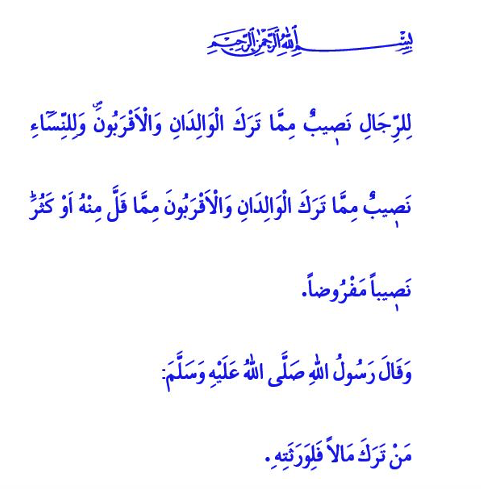 بِسْمِ اللهِ الرَّحْمٰنِ الرَّحِيمِ
لِلرِّجَالِ نَصٖيبٌ مِمَّا تَرَكَ الْوَالِدَانِ وَالْاَقْرَبُونَۖ وَلِلنِّسَٓاءِ
نَصٖيبٌ مِمَّا تَرَكَ الْوَالِدَانِ وَالْاَقْرَبُونَ مِمَّا قَلَّ مِنْهُ اَوْ كَثُرَۜ
نَصٖيباً مَفْرُوضاً.
وَقَالَ رَسُولُ اللهِ صَلَّى اللهُ عَلَيْهِ وَسَلَّمَ:
مَنْ تَرَكَ مَالاً فَلِوَرَثَتِهِ.